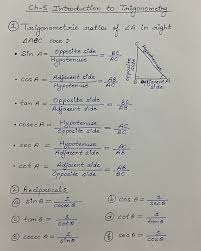 Ch-5 Introduction to Trigonometry
① Trigonometric ratios of ∠A in right
△ABC are :
• sin A = Opposite side / Hypotenuse = BC / AC
• cos A = Adjacent side / Hypotenuse = AB / AC
• tan A = Opposite side / Adjacent side = BC / AB
• cosec A = Hypotenuse / Opposite side = AC / BC
• sec A = Hypotenuse / Adjacent side = AC / AB
• cot A = Adjacent side / Opposite side = AB / BC
② Reciprocals
ⓐ sin θ = 1 / cosec θ ⓑ cos θ = 1 / sec θ
ⓒ tan θ = 1 / cot θ ⓓ cot θ = 1 / tan θ
ⓔ cosec θ = 1 / sin θ ⓕ sec θ = 1 / cos θ